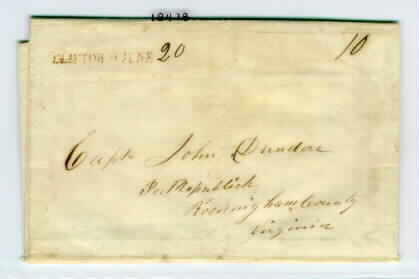 18478
20
10
Capt John Dundore
Port Republick
Rockingham County
Virginia